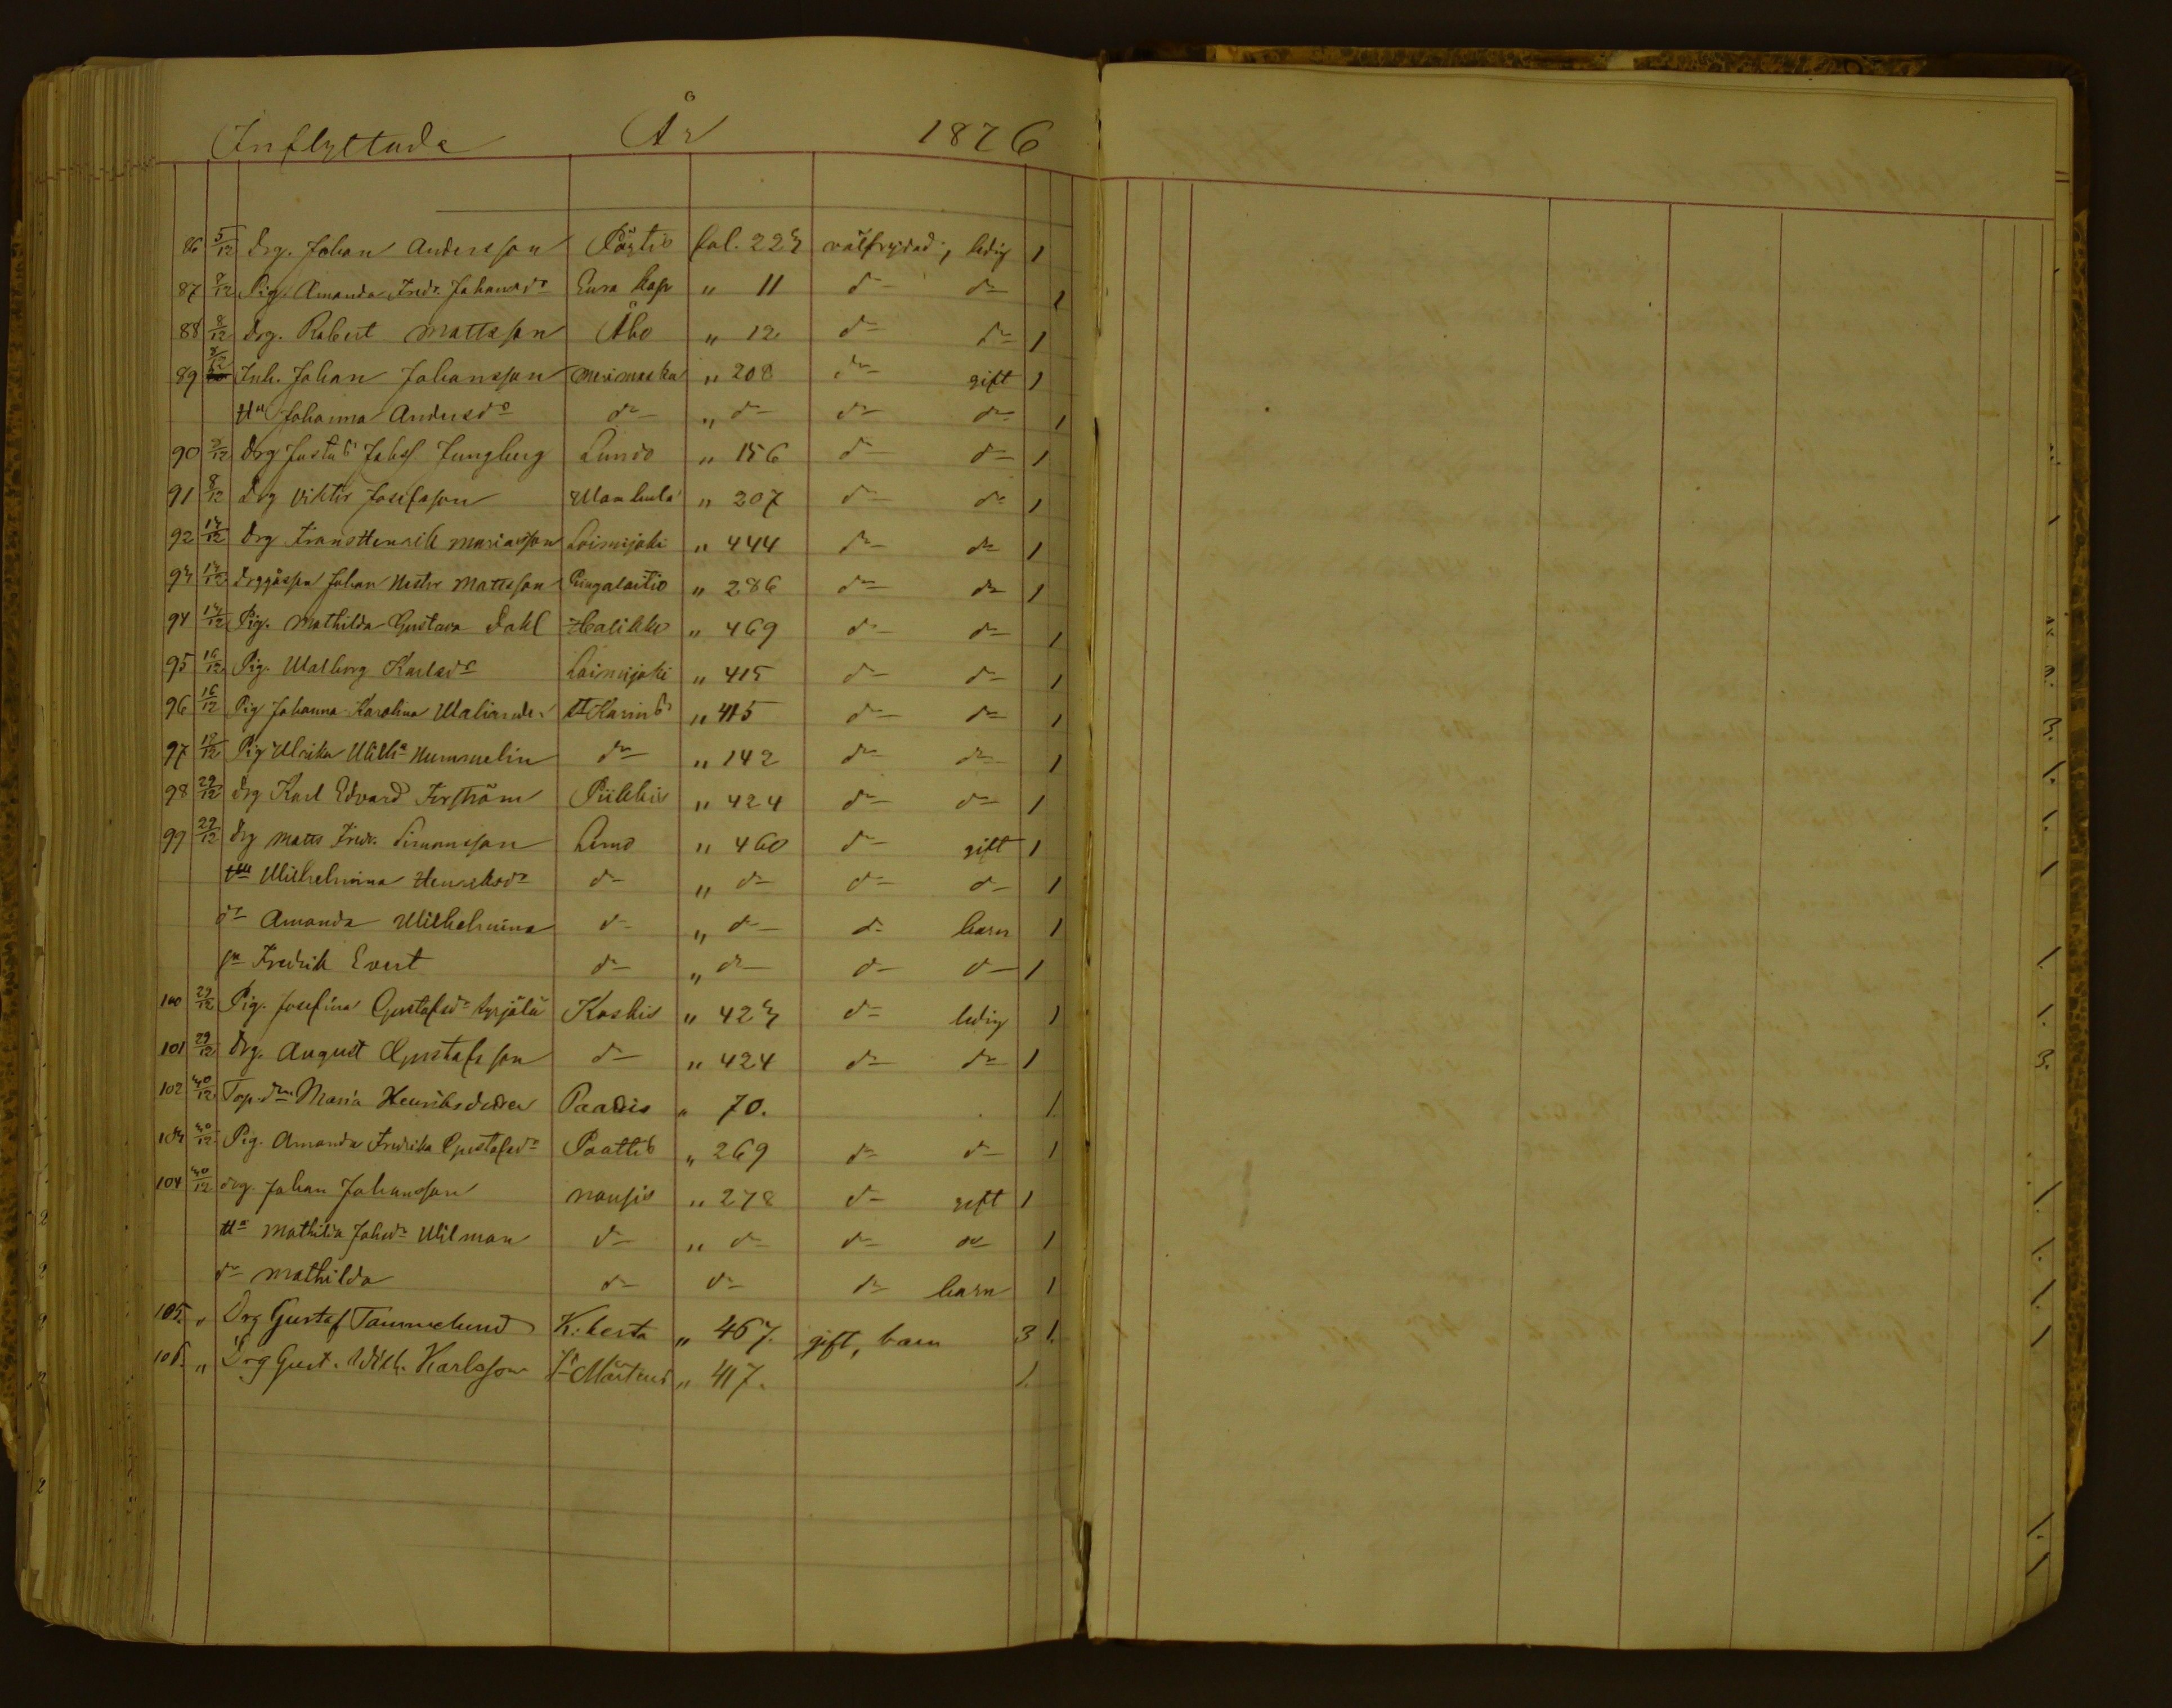 Inflyttade År 1876
86 5/12 Drg. Johan Andersson Pöytis fol. 223 välfrejdad, ledig 1
87 7/12 Pig. Amanda Fredr. Johansdr Eura kap " 11 do do 1
88 8/12 Drg. Robert Mattsson Åbo " 12 do do 1
89 8/12 Inh. Johan Johansson Merimasku " 208 do gift 1
Hu Johanna Andersdr do " do do do 1
90 8/12 Drg Gustaf Johss Jungberg Lundo " 156 do do 1
91 8/12 Drg Viktor Josefsson Wambula " 207 do do 1
92 14/12 Drg Frans Henrik Mariasson Loimijoki " 444 do do 1
93 14/12 Drggossen Johan Nestor Mattsson Pungalaitio " 286 do do 1
94 14/12 Pig. Mathilda Gustava Dahl Halikko " 469 do do 1
95 16/12 Pig. Walborg Karlsdr Loimijoki " 415 do do 1
96 16/12 Pig Johanna Karolina Waliander St Karins " 415 do do 1
97 18/12 Pig Ulrika Wilhа Nummelin do " 142 do do 1
98 29/12 Drg Karl Edvard Forsström Piikkis " 424 do do 1
99 29/12 Drg Matts Fredr. Simonsson Lemo " 460 do gift 1
Hu Wilhelmina Henriksdr do " do do do 1
dr Amanda Wilhelmina do " do do barn 1
sn Fredrik Evert do " do do do 1
100 29/12 Pig. Josefina Gustafsdr Syrjälä Koskis " 423 do ledig 1
101 29/12 Drg. August Gustafsson do " 424 do do 1
102 30/12 Maria Henriksdotter " 70. 1
103 30/12 Pig. Amanda Fredrika Gustafsdr Paattis " 269 do do 1
104 30/12 drg. Johan Johansson Nousis " 278 do gift 1
Hu Mathilda Johsdr Wilman do " do do do 1
dr Mathilda do do do barn 1
105. " Drg Gustaf Tammelund K:kerta " 467. gift, barn 3 1.
106. " Drg Gust. Wilh. Karlsson St Mårtens " 417. 1.